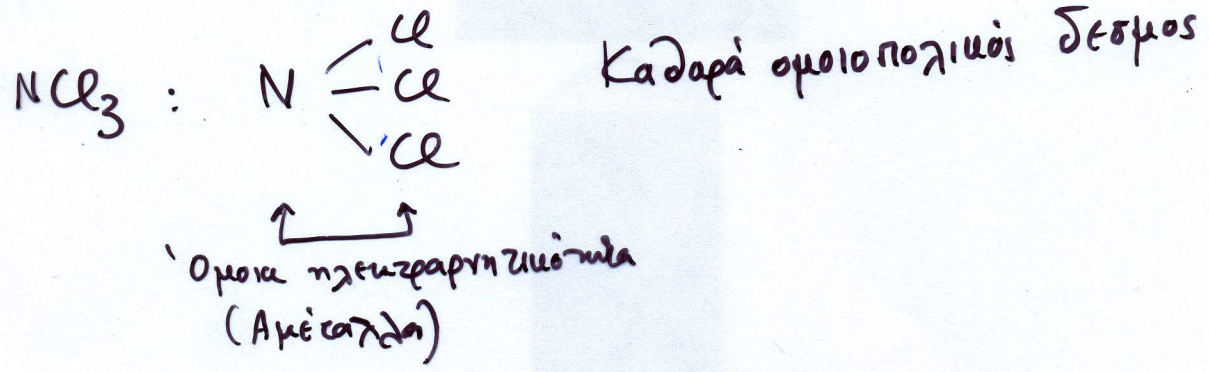 NCl3 : N Cl Cl Cl Καθαρά ομοιοπολικός δεσμος
Όμοια ηλεκτραρνητικότητα
(Αμέταλλα)